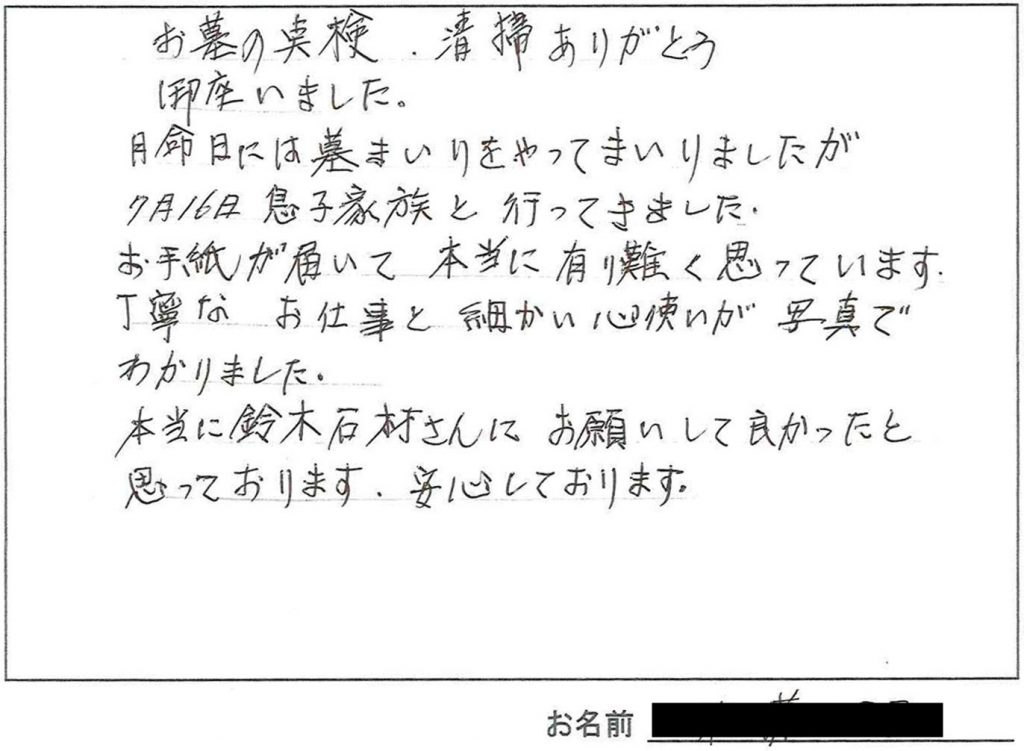 お墓の点検．清掃ありがとう
御座いました。
月命日には墓まいりをやってまいりましたが
7月16日 息子家族と 行ってきました．
お手紙が届いて 本当に有り難く思っています．
丁寧な お仕事と 細かい心使いが 写真で
わかりました．
本当に鈴木石材さんに お願いして良かったと
思っております．安心しております。
お名前